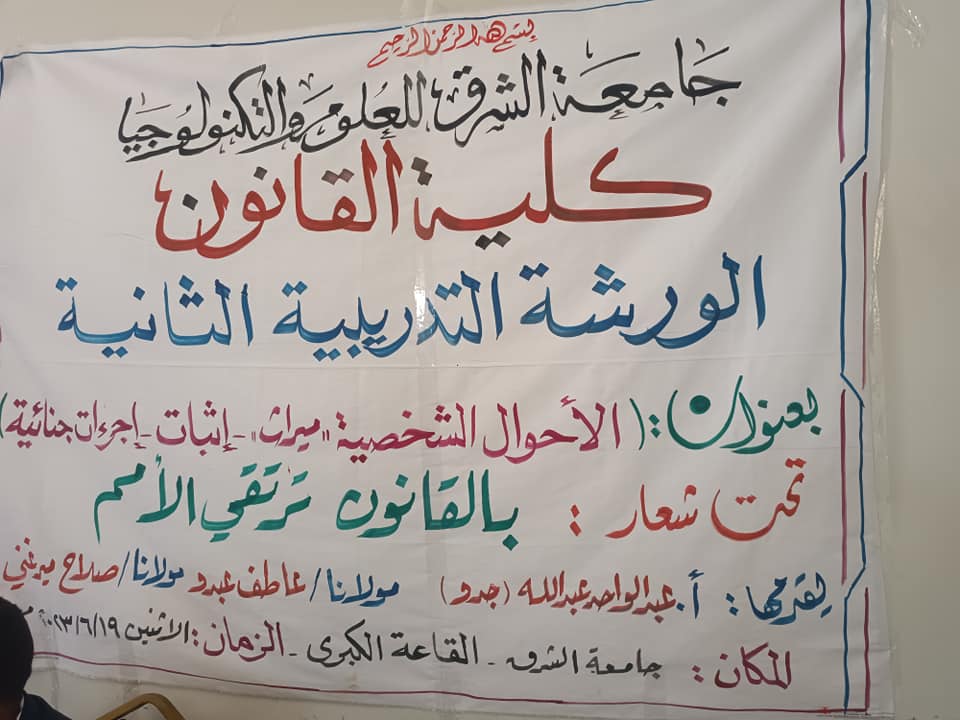 بسم الله الرحمن الرحيم
جامعة الشرق للعلوم والتكنولوجيا
كلية القانون
الورشة التدريبية الثانية
بعنوان : ( الأحوال الشخصية "ميراث" - إثبات - إجراءات جنائية )
تحت شعار : بالقانون ترتقي الأمم
يقدمها : أ. عبدالواحد عبدالله (جدو) مولانا / عاطف عبدو مولانا / صلاح ميرغني
المكان : جامعة الشرق - القاعة الكبرى - الزمان : الاثنين ٢٠٢٣/٦/١٩م